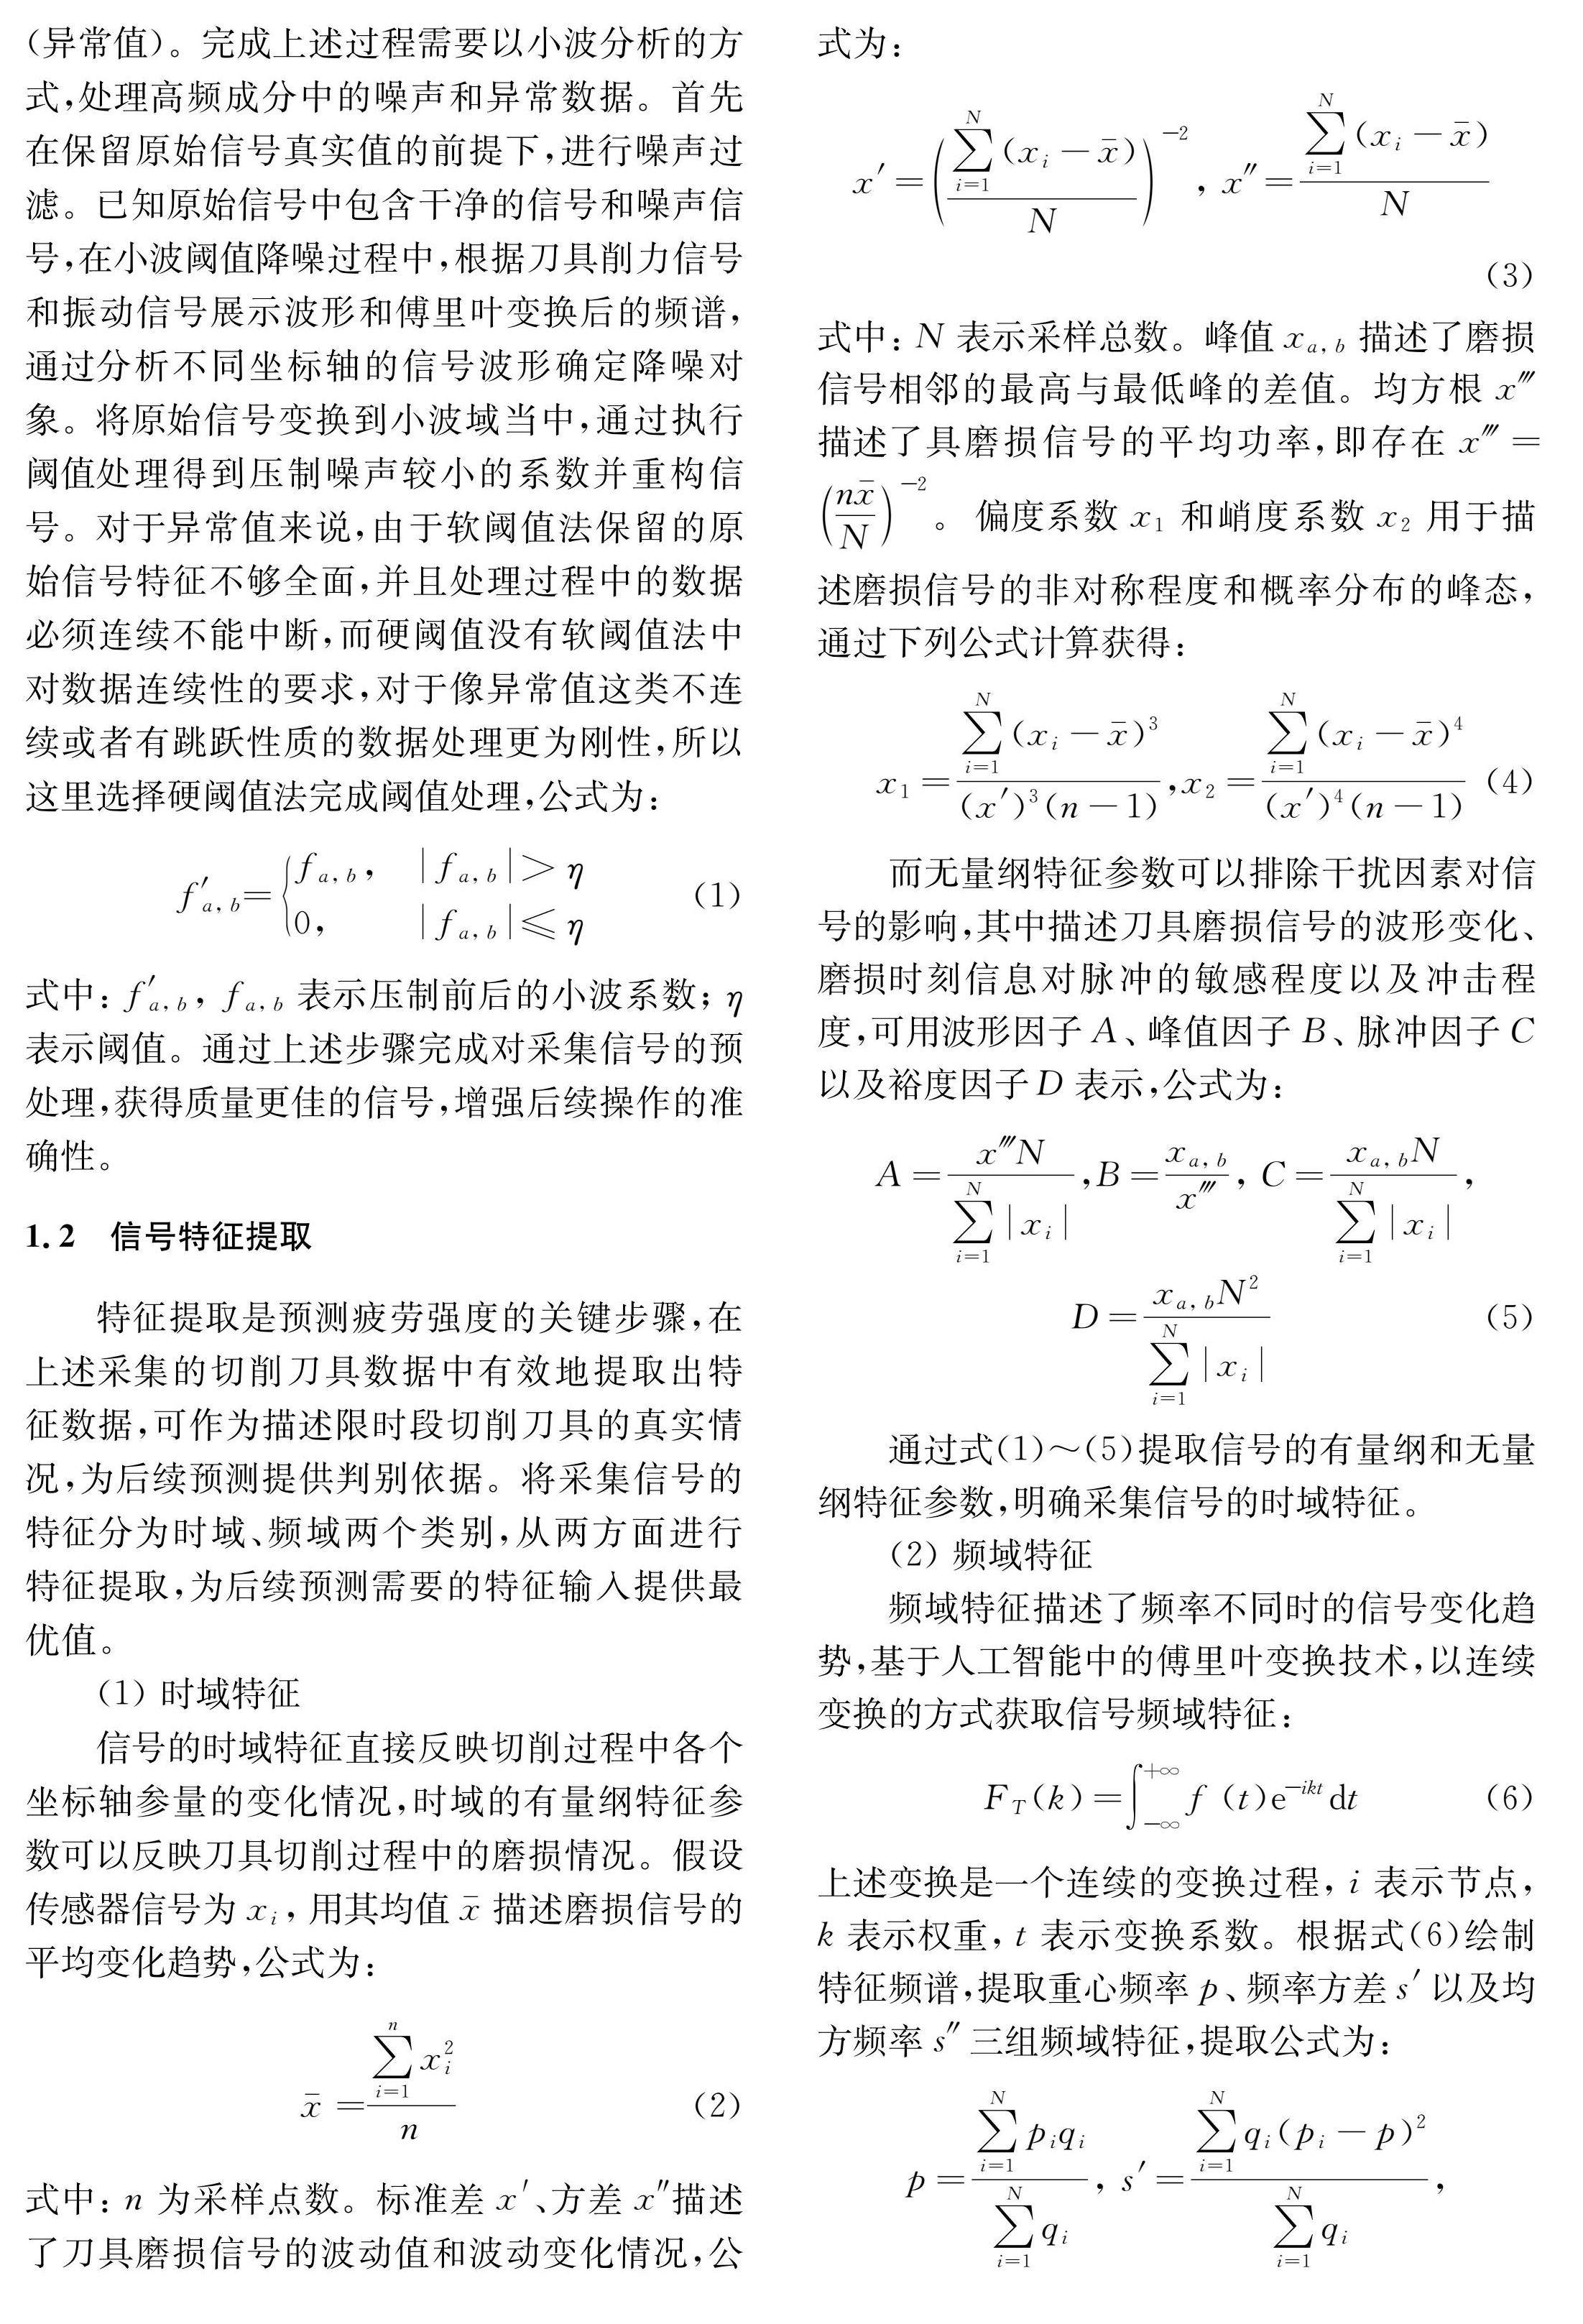 (异常值)。完成上述过程需要以小波分析的方
式,处理高频成分中的噪声和异常数据。首先
在保留原始信号真实值的前提下,进行噪声过
滤。已知原始信号中包含干净的信号和噪声信
号,在小波阈值降噪过程中,根据刀具削力信号
和振动信号展示波形和傅里叶变换后的频谱,
通过分析不同坐标轴的信号波形确定降噪对
象。将原始信号变换到小波域当中,通过执行
阈值处理得到压制噪声较小的系数并重构信
号。对于异常值来说,由于软阈值法保留的原
始信号特征不够全面,并且处理过程中的数据
必须连续不能中断,而硬阈值没有软阈值法中
对数据连续性的要求,对于像异常值这类不连
续或者有跳跃性质的数据处理更为刚性,所以
这里选择硬阈值法完成阈值处理,公式为:
$f'_{a,b}=\begin{cases} f_{a,b}, & |f_{a,b}|>\eta \\ 0, & |f_{a,b}|\leqslant\eta \end{cases}$ (1)
式中: $f'_{a,b}$, $f_{a,b}$ 表示压制前后的小波系数; η
表示阈值。通过上述步骤完成对采集信号的预
处理,获得质量更佳的信号,增强后续操作的准
确性。
1.2 信号特征提取
特征提取是预测疲劳强度的关键步骤,在
上述采集的切削刀具数据中有效地提取出特
征数据,可作为描述限时段切削刀具的真实情
况,为后续预测提供判别依据。将采集信号的
特征分为时域、频域两个类别,从两方面进行
特征提取,为后续预测需要的特征输入提供最
优值。
(1) 时域特征
信号的时域特征直接反映切削过程中各个
坐标轴参量的变化情况,时域的有量纲特征参
数可以反映刀具切削过程中的磨损情况。假设
传感器信号为 $x_i$, 用其均值 $\bar{x}$ 描述磨损信号的
平均变化趋势,公式为:
$\bar{x}=\frac{\sum_{i=1}^{n}x_i^2}{n}$ (2)
式中: n 为采样点数。标准差 x′、方差 x″描述
了刀具磨损信号的波动值和波动变化情况,公
式为:
$x'=\left(\frac{\sum_{i=1}^{N}(x_i-\bar{x})}{N}\right)^{-2}$, $x''=\frac{\sum_{i=1}^{N}(x_i-\bar{x})}{N}$
(3)
式中: N 表示采样总数。峰值 $x_{a,b}$ 描述了磨损
信号相邻的最高与最低峰的差值。均方根 x‴
描述了具磨损信号的平均功率,即存在 x‴ =
$\left(\frac{n\bar{x}}{N}\right)^{-2}$。偏度系数 $x_1$ 和峭度系数 $x_2$ 用于描
述磨损信号的非对称程度和概率分布的峰态,
通过下列公式计算获得:
$x_1=\frac{\sum_{i=1}^{N}(x_i-\bar{x})^3}{(x')^3(n-1)}$,$x_2=\frac{\sum_{i=1}^{N}(x_i-\bar{x})^4}{(x')^4(n-1)}$ (4)
而无量纲特征参数可以排除干扰因素对信
号的影响,其中描述刀具磨损信号的波形变化、
磨损时刻信息对脉冲的敏感程度以及冲击程
度,可用波形因子 A、峰值因子 B、脉冲因子 C
以及裕度因子 D 表示,公式为:
$A=\frac{x'''N}{\sum_{i=1}^{N}|x_i|}$,$B=\frac{x_{a,b}}{x'''}$, $C=\frac{x_{a,b}N}{\sum_{i=1}^{N}|x_i|}$,
$D=\frac{x_{a,b}N^2}{\sum_{i=1}^{N}|x_i|}$ (5)
通过式(1)~(5)提取信号的有量纲和无量
纲特征参数,明确采集信号的时域特征。
(2) 频域特征
频域特征描述了频率不同时的信号变化趋
势,基于人工智能中的傅里叶变换技术,以连续
变换的方式获取信号频域特征:
$F_T(k)=\int_{-\infty}^{+\infty}f(t)\mathrm{e}^{-ikt}\mathrm{d}t$ (6)
上述变换是一个连续的变换过程, i 表示节点,
k 表示权重, t 表示变换系数。根据式(6)绘制
特征频谱,提取重心频率 p、频率方差 s′ 以及均
方频率 s″ 三组频域特征,提取公式为:
$p=\frac{\sum_{i=1}^{N}p_iq_i}{\sum_{i=1}^{N}q_i}$, $s'=\frac{\sum_{i=1}^{N}q_i(p_i-p)^2}{\sum_{i=1}^{N}q_i}$,